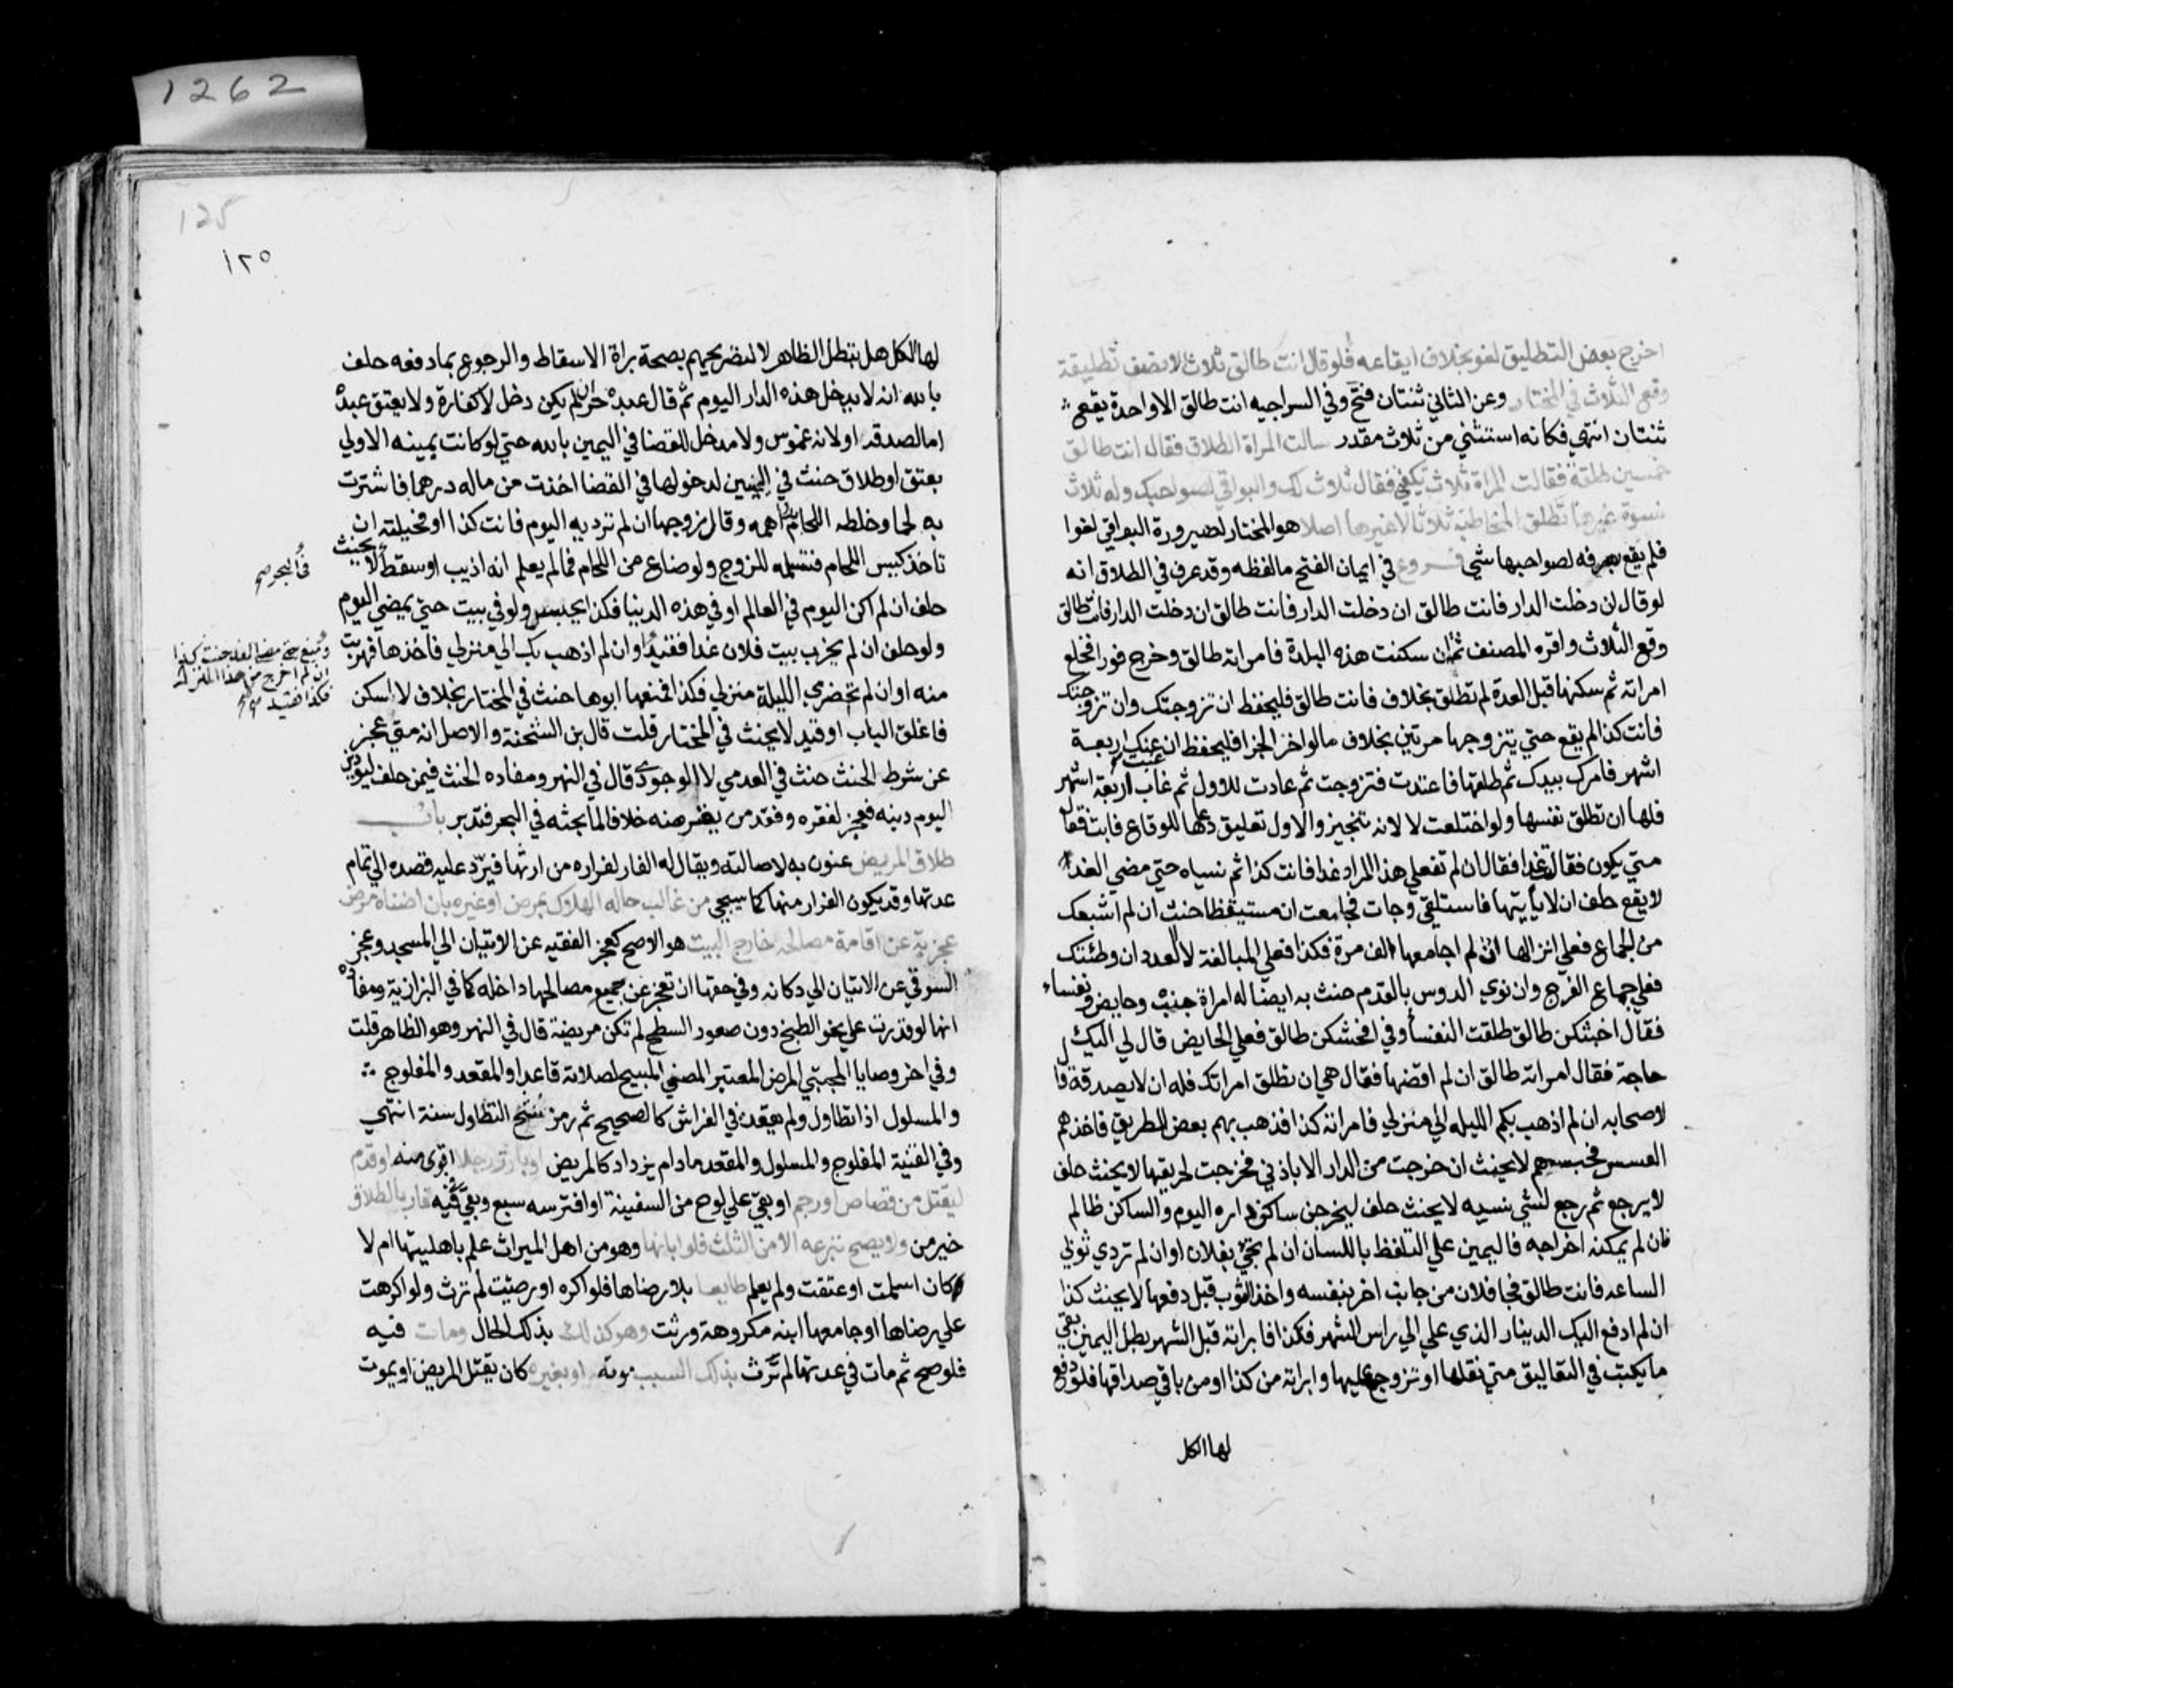 1262
اخرج بعض التطليق لغو بخلاف ايقاعه فلو قال انت طالق ثلاث الا نصف تطليقة
وقع الثلاث في المختار وعن الثاني ثنتان فتح وفي السراجيه انت طالق الا واحدة يقع
ثنتان انتهي فكانه استثني من ثلاث مقدر سالت المراة الطلاق فقال انت طالق
خمسين طلقة فقالت المراة ثلاث تكفي فقال ثلاث لك والبواقي لصواحبك وله ثلاث
نسوة غيرها تطلق المخاطبة ثلاثا لا غيرها اصلا هو المختار لصيرورة البواقي لغوا
فلم يقع بصرفه لصواحبها شي فروع في ايمان الفتح ما لفظه وقد عرف في الطلاق انه
لو قال ان دخلت الدار فانت طالق ان دخلت الدار فانت طالق ان دخلت الدار فانت طالق
وقع الثلاث واقره المصنف ثم ان سكنت هذه البلدة فامراته طالق وخرج فورا فخلع
امراته ثم سكنها قبل العدة لم تطلق بخلاف فانت طالق فليحفظ ان تزوجتك وان تزوجتك
فانت كذا لم يقع حتي يتزوجها مرتين بخلاف ما لو اخر الجزا فليحفظ ان غبت عنك اربعة
اشهر فامرك بيدك ثم طلقها فاعتدت فتزوجت ثم عادت للاول ثم غاب اربعة اشهر
فلها ان تطلق نفسها ولو اختلعت لا لانه تنجيز والاول تعليق دعاها للوقاع فابت فقال
متي يكون فقالت غدا فقال ان لم تفعلي هذا المراد غدا فانت كذا ثم نسياه حتي مضي الغد
لا يقع حلف ان لا ياتيها فاستلقي وجات فجامعت ان مستيقظا حنث ان لم اشبعك
من الجماع فعلي انزالها ان لم اجامعها الف مرة فكذا فعلي المبالغة لا العدد ان وطئتك
فعلي جماع الفرج وان نوي الدوس بالقدم حنث به ايضا له امراة جنب وحايض ونفساء
فقال اخبثكن طالق طلقت النفسا وفي افحشكن طالق فعلي الحايض قال لي اليك
حاجة فقال امراته طالق ان لم اقضها فقال هي ان تطلق امراتك فله ان لا يصدقه قال
لاصحابه ان لم اذهب بكم الليله الي منزلي فامراته كذا فذهب بهم بعض الطريق فاخذهم
العسس فحبسهم لا يحنث ان خرجت من الدار الا باذني فخرجت لحريقها لا يحنث حلف
لا يرجع ثم رجع لشي نسيه لا يحنث حلف ليخرجن ساكن داره اليوم والساكن ظالم
فان لم يمكنه اخراجه فاليمين علي التلفظ باللسان ان لم تجي بفلان او ان لم تردي ثوبي
الساعه فانت طالق فجا فلان من جانب اخر بنفسه واخذ الثوب قبل دفعها لا يحنث كذا
ان لم ادفع اليك الدينار الذي علي الي راس الشهر فكذا فابراته قبل الشهر بطل اليمين بقي
ما يكتب في التعاليق متي نقلها او تزوج عليها وابراته من كذا او من باقي صداقها فلو دفع
لها الكل
125
١٢٥
لها الكل هل تبطل الظاهر لا لتصريحهم بصحة براة الاسقاط والرجوع بما دفعه حلف
بالله انه لا يدخل هذه الدار اليوم ثم قال عبده حر ان لم يكن دخل لا كفارة ولا يعتق عبده
اما لصدقه او لانه غموس ولا مدخل للقضا في اليمين بالله حتي لو كانت يمينه الاولي
بعتق او طلاق حنث في اليمينين لدخولها في القضا اخذت من ماله درهما فاشترت
به لحما وخلطه اللحام بدراهمه وقال زوجها ان لم ترديه اليوم فانت كذا فحيلته ان
تاخذ كيس اللحام فتسلمه للزوج ولو ضاع من اللحام فما لم يعلم انه اذيب او سقط لا يحنث
حلف ان لم اكن اليوم في العالم او في هذه الدنيا فكذا يحبس ولو في بيت حتي يمضي اليوم
ولو حلف ان لم يخرب بيت فلان غدا فقيد او ان لم اذهب بك الي منزلي فاخذها فهربت
منه او ان لم تحضري الليلة منزلي فكذا فمنعها ابوها حنث في المختار بخلاف لا اسكن
فاغلق الباب او قيد لا يحنث في المختار قلت قال بن الشحنة والاصل انه متي عجز
عن شرط الحنث حنث في العدمي لا الوجودي قال في النهر ومفاده الحنث فيمن حلف ليودين
اليوم دينه فعجز لفقره وفقد من يقترضه خلافا لما بحثه في البحر فتدبر باب
طلاق المريض عنون به لاصالته ويقال له الفار لفراره من ارثها فيرد عليه قصده الي تمام
عدتها وقد يكون الفرار منها كما سيجي من غالب حاله الهلاك بمرض او غيره بان اضناه مرض
عجز به عن اقامة مصالحه خارج البيت هو الاصح كعجز الفقيه عن الاتيان الي المسجد وعجز
السوقي عن الاتيان الي دكانه وفي حقها ان تعجز عن جميع مصالحها داخله كما في البزازية ومفاده
انها لو قدرت علي نحو الطبخ دون صعود السطح لم تكن مريضة قال في النهر وهو الظاهر قلت
وفي اخر وصايا المجتبي المرض المعتبر المضني المبيح لصلاته قاعدا والمقعد والمفلوج
والمسلول اذا تطاول ولم يقعده في الفراش كالصحيح ثم رمز شح التطاول سنة انتهي
وفي القنية المفلوج والمسلول والمقعد ما دام يزداد كالمريض او بارز رجلا اقوي منه او قدم
ليقتل من قصاص او رجم او بقي علي لوح من السفينة او افترسه سبع وبقي في فيه فار بالطلاق
خبر من ولا يصح تبرعه الا من الثلث فلو ابانها وهو من اهل الميراث علم باهليتها ام لا
كان اسلمت او عتقت ولم يعلم طايعا بلا رضاها فلو اكره او رضيت لم ترث ولو اكرهت
علي رضاها او جامعها ابنه مكروهة ورثت وهو كذلك بذلك الحال ومات فيه
فلو صح ثم مات في عدتها لم ترث بذلك السبب موته او بغيره كان يقتل المريض او يموت
في البحر صح
ان لم اخرج من هذا المنزل
فكذا فقيد صح